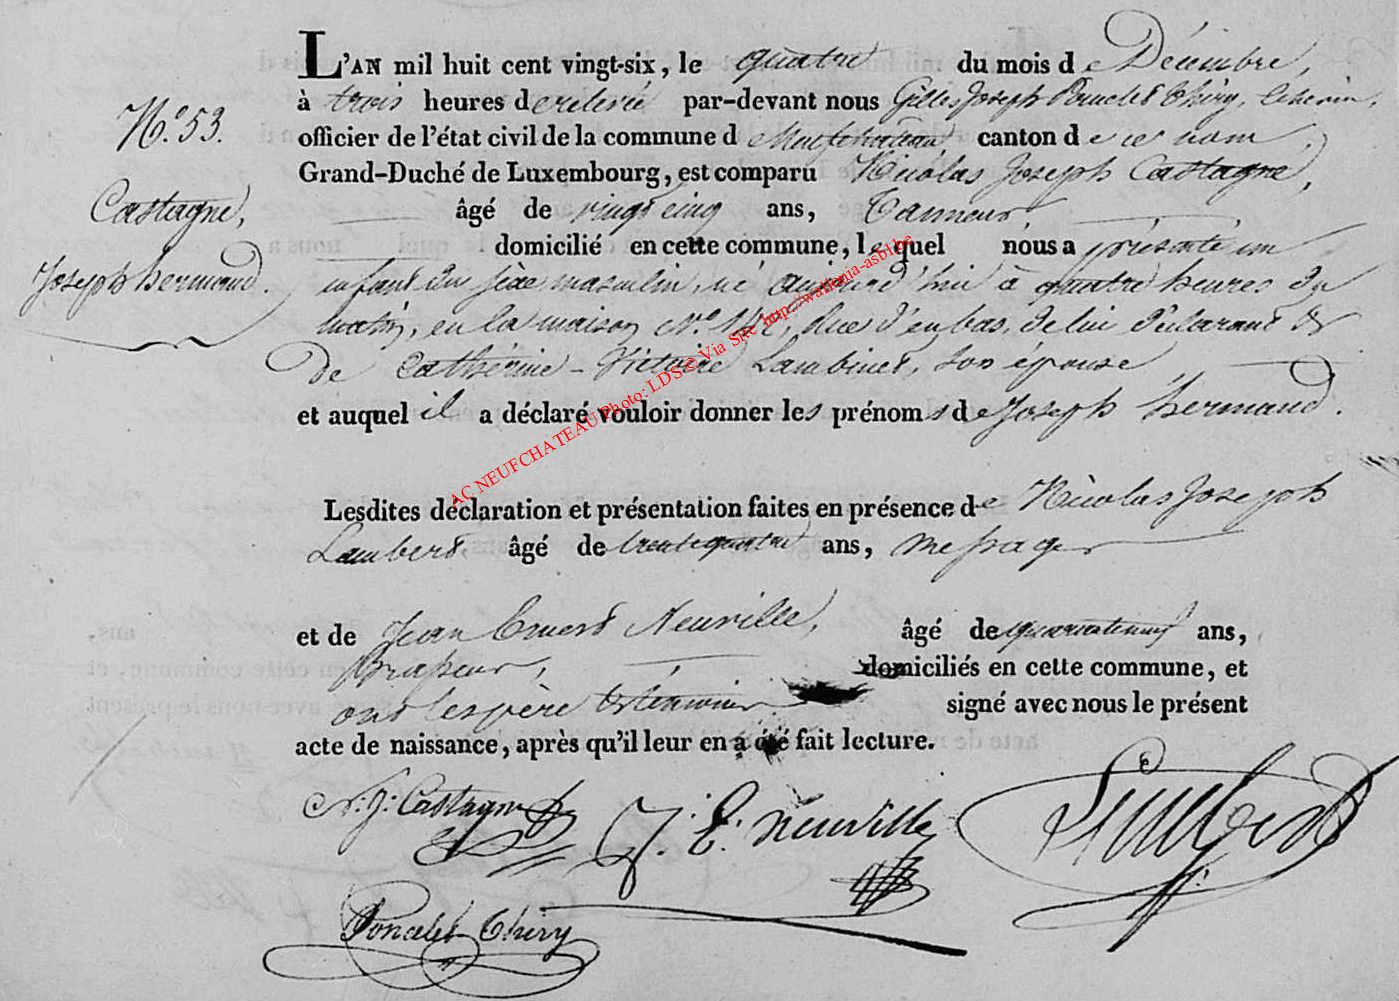 L'AN mil huit cent vingt-six, le quatre du mois de Décembre,
à trois heures de relevée par-devant nous Gilles Joseph Poncelet Thiry, Echevin,
N.° 53.
officier de l'état civil de la commune de Neufchateau canton de ce nom,
Grand-Duché de Luxembourg, est comparu Nicolas Joseph Castagne,
Castagne,
âgé de vingt cinq ans, Tanneur
domicilié en cette commune, lequel nous a présenté un
Joseph hermand.
enfant du sèxe masculin, né aujourd'hui à quatre heures du
matin, en la maison N.°, Rue d'en bas, de lui déclarant &
de Cathérine - Victoire Lambinet, son épouse
et auquel il a déclaré vouloir donner les prénoms de Joseph hermand.
AC NEUFCHATEAU Photo: LDS © Via Site http://wallonia-asbl.be
Lesdites déclaration et présentation faites en présence de Nicolas Joseph
Lambert âgé de trente quatre ans, messager
et de Jean Ernest Neuville, âgé de quarante neuf ans,
Brasseur, domiciliés en cette commune, et
ont les père & témoins signé avec nous le présent
acte de naissance, après qu'il leur en a été fait lecture.
N: J: Castagne
J. E. Neuville
Lambert
Poncelet-Thiry